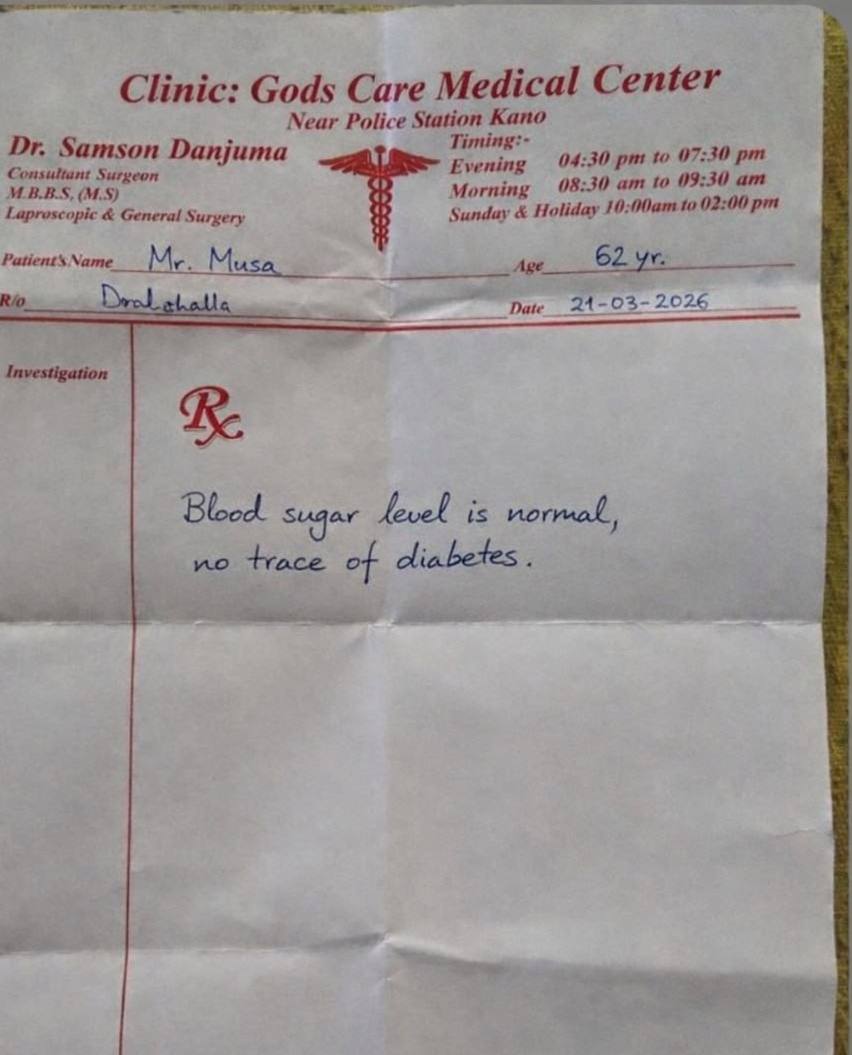 Clinic: Gods Care Medical Center
Near Police Station Kano
Dr. Samson Danjuma
Consultant Surgeon
M.B.B.S, (M.S)
Laproscopic & General Surgery
Timing:-
Evening 04:30 pm to 07:30 pm
Morning 08:30 am to 09:30 am
Sunday & Holiday 10:00am to 02:00 pm
Patient's Name Mr. Musa Age 62 yr.
R/o Date 21-03-2026
Investigation
Rx
Blood sugar level is normal,
no trace of diabetes.